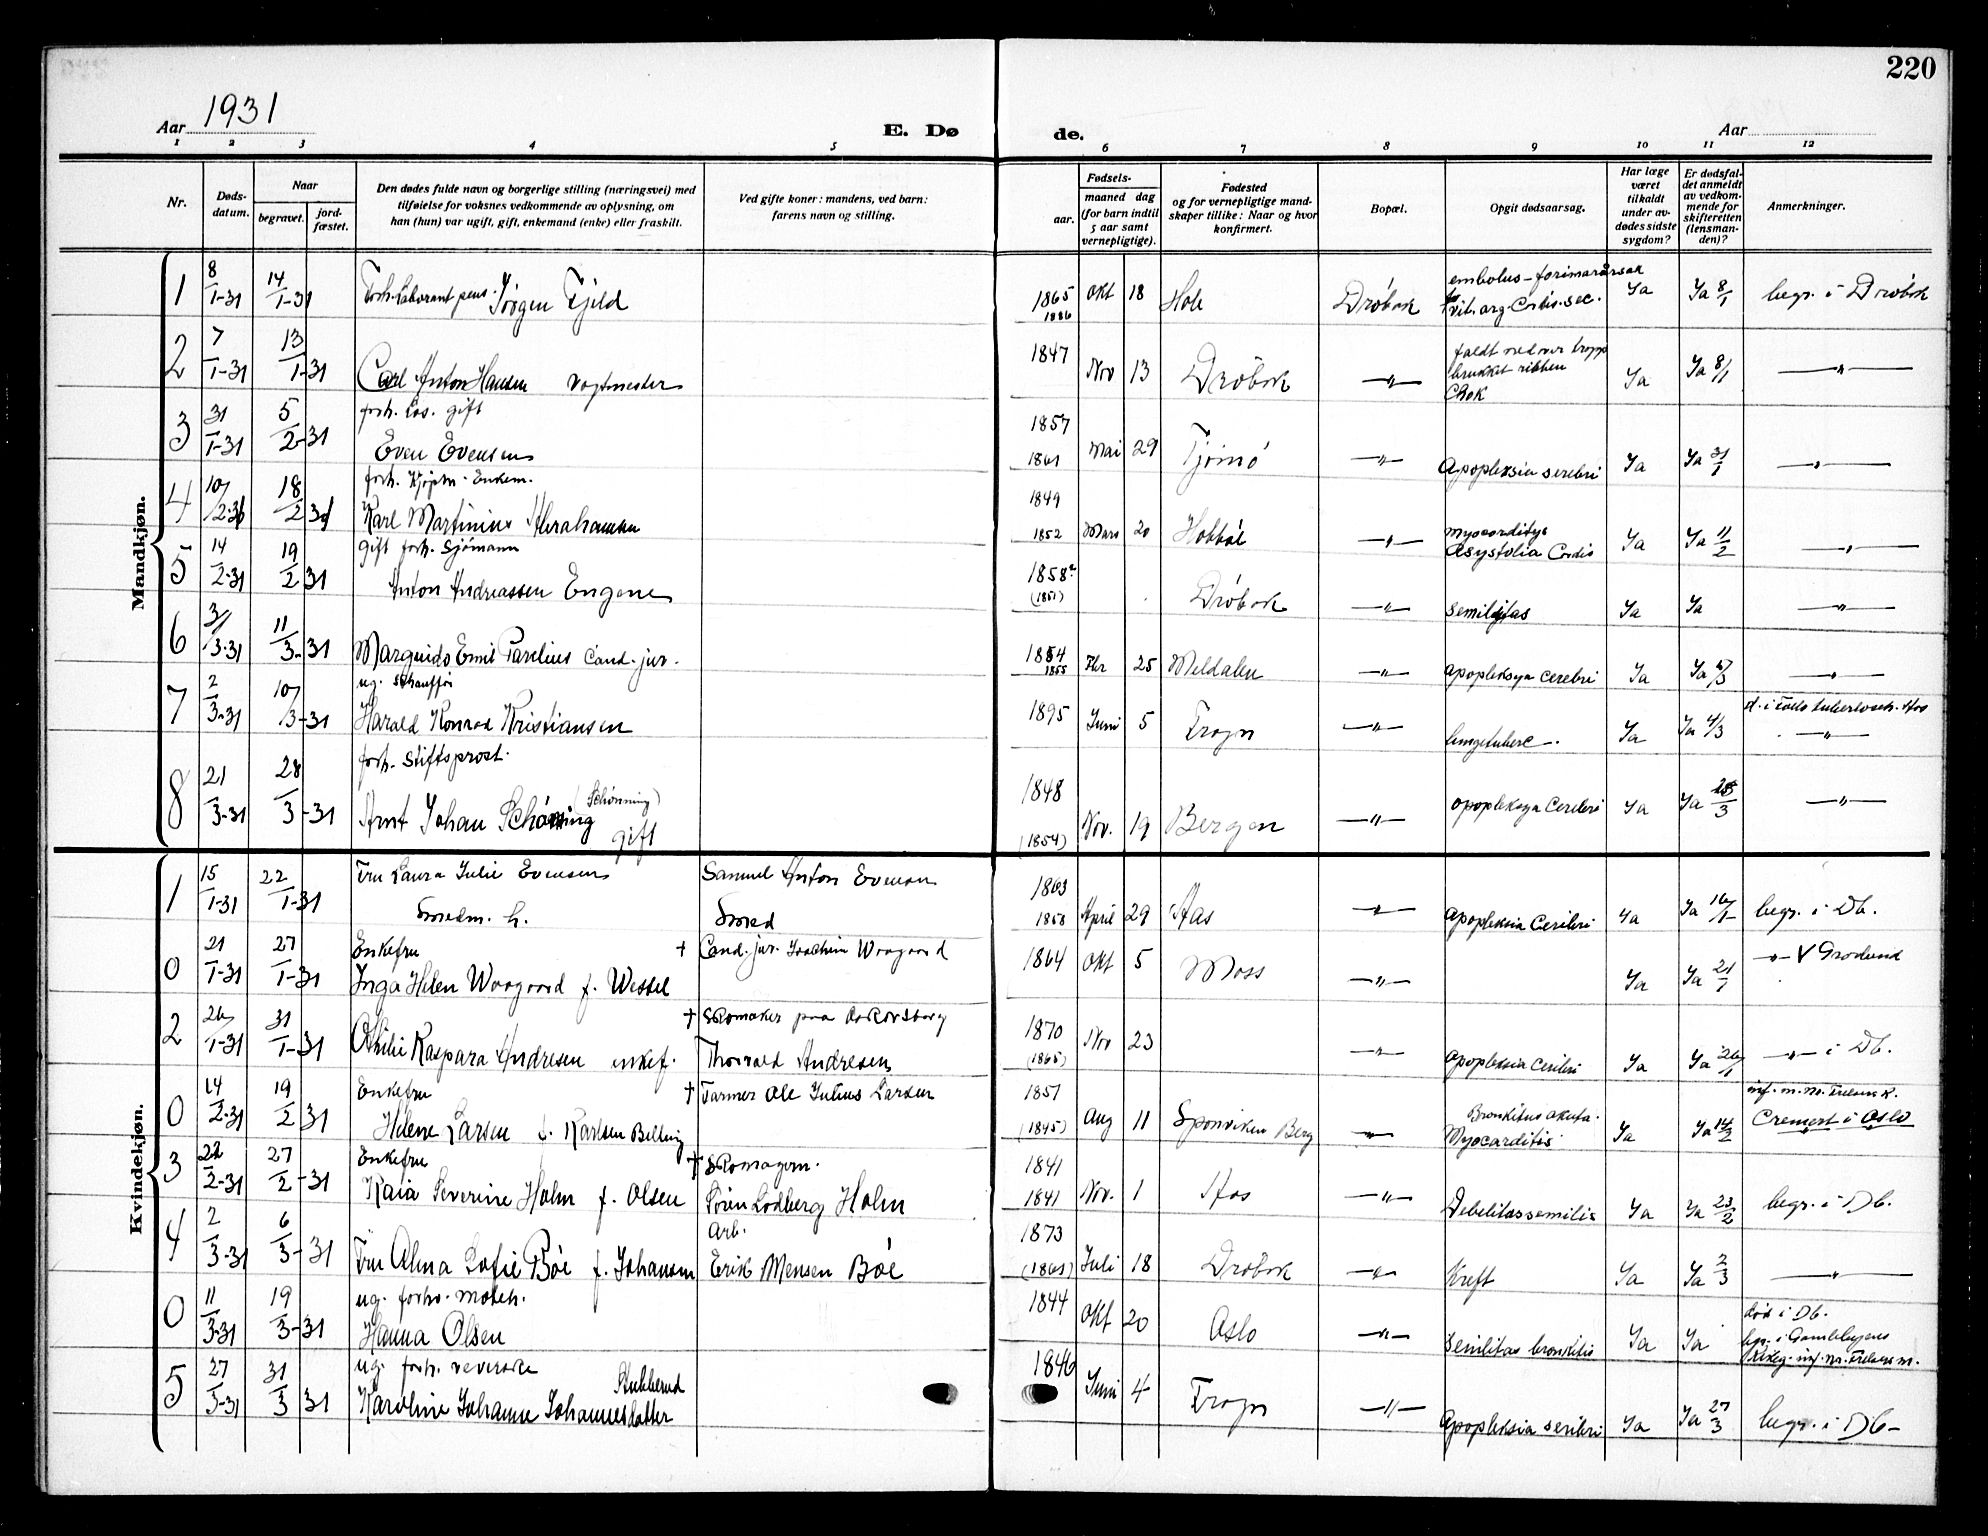 220
Aar 1931
E. Dø de.
Aar
1 2 3 4 5 6 7 8 9 10 11 12
Nr.
Døds-datum.
Naar
begravet.
jord-fæstet.
Den dødes fulde navn og borgerlige stilling (næringsvei) med
tilføielse for voksnes vedkommende av oplysning, om
han (hun) var ugift, gift, enkemand (enke) eller fraskilt.
Ved gifte koner: mandens, ved barn:
farens navn og stilling.
Fødsels-
aar.
maaned dag
(for barn indtil
5 aar samt
vernepligtige).
Fødested
og for vernepligtige mand-
skaper tillike: Naar og hvor
konfirmert.
Bopæl.
Opgit dødsaarsag.
Har læge
været
tilkaldt
under av-
dødes sidste
sygdom?
Er dødsfal-
det anmeldt
av vedkom-
mende for
skifteretten
(lensman-
den)?
Anmerkninger.
Mandkjøn.
1 8/1-31 14/1-31 Forh. Laborant pens. Jørgen Fjeld 1865 1886 Okt 18 Hole Drøbak embolus - Ja Ja 8/1 begr. i Drøbak
2 7/1-31 13/1-31 Carl Anton Hansen Vogtmester 1847 Nov 13 Drøbak —"— faldt ned over trapp
brukket ribben
Chok Ja Ja 8/1 —"—
3 31/1-31 5/2-31 forh. Los. gift
Even Evensen 1857 1861 Mai 29 Tjømø —"— Apopleksia serebri Ja Ja 31/1 —"—
4 10/2-31 18/2 31 forh. Kjøpm. Enkem.
Karl Martinius Abrahamsen 1849 1852 Mars 20 Hobbøl —"— Asystolia Cordis Ja Ja 11/2 —"—
5 14/2-31 19/2 31 gift forh. Sjømann
Anton Andreassen Engene 1858 (1851) Drøbak —"— Ja Ja —"—
6 3/3-31 11/3-31 Emil Parelius Cand. jur. 1854 1855 25 Meldalen —"— apopleksya cerebri Ja Ja —"—
7 2/3-31 10/3-31 ug. Schauffør
Harald Konrad Kristiansen 1895 Juni 5 Frogn —"— lungetuberc. Ja Ja 4/3 —"—
8 21/3-31 28/3-31 forh. Stiftsprost.
Arnt Johan Schønning (Schønning)
gift 1848 (1854) Nov. 19 Bergen —"— apopleksya Cerebri Ja Ja —"—
Kvindekjøn.
1 15/1-31 22/1-31 Fru Laura Julie Evensen
Smedm. h. Samuel Anton Evensen
Smed 1863 1858 April 29 Aas —"— apopleksia Cerebri Ja Ja 16/1 begr. i Db.
0 21/1-31 27/1-31 Enkefru
Inga Helen Waagaard f. Wessel + Cand. jur. Joachim Waagaard 1864 Okt 5 Moss —"— Ja Ja 21/1 —"—
2 26/1-31 31/1-31 Kaspara Andresen enkef. + Skomaker paa
Thorvald Andresen 1870 (1865) Nov 23 —"— apopleksia Cerebri Ja Ja 26/1 —"— i Db.
0 14/2-31 19/2 31 Enkefru
Helene Larsen f. Karlsen + Farmer Ole Julius Larsen 1851 (1845) Aug 11 Sponviken Berg —"— Bronkitus akuta.
Myocarditis Ja Ja 14/2 Cremert i Oslo
3 22/2-31 27/2-31 Enkefru
Kaia Severine Holm f. Olsen + Skomagerm.
Søren Lodberg Holm 1841 1841 Nov. 1 Aas —"— Ja Ja 23/2 begr. i Db.
4 2/3-31 6/3-31 Fru Alma Sofie Bøe f. Johansen Arb.
Erik Mensen Bøe 1873 (1861) Juli 18 Drøbak —"— Kreft Ja Ja 2/3 —"—
0 11/3-31 19/3-31 ug.
Hanna Olsen 1844 Okt 20 Oslo —"— Senilitas bronkitis Ja Ja død i Db.
5 27/3-31 31/3 31 ug. forh. veverske
Karoline Johanne Johannesdatter Stubberud 1846 Juni 4 Frogn —"— Apopleksia seribri Ja Ja 27/3 begr. i Db—